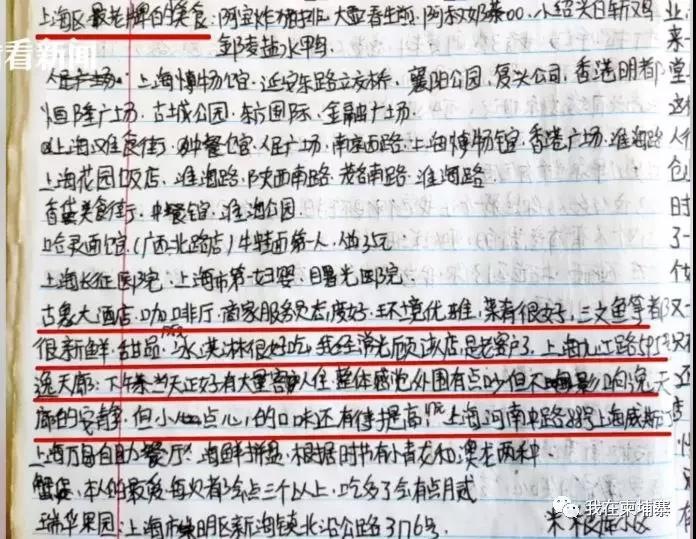 看看新闻
上海最老牌的美食:阿宝炸猪排.大壶春生煎.阿婆奶茶.小绍兴白斩鸡
盐水鸭
人民广场.上海博物馆.延安东路立交桥.襄阳公园.复兴公司.香港明都
恒隆广场.古城公园.东方国际.金融广场.
上海美食街.中餐馆.人民广场.南京西路.上海博物馆.香港广场.淮海路
上海花园饭店.淮海路.陕西南路.茂名南路.淮海路.
美食街.中餐馆.淮海公园.
哈灵面馆.(广西北路店)牛蛙面第一人.
上海长征医院.上海市第一妇婴.曙光医院.
古象大酒店.咖啡厅.商家服务员态度好.环境优雅.菜肴很好.三文鱼等都
很新鲜.甜品.冰淇淋很好吃.我经常光顾该店.是老客户了.上海九江路595
逸天廊:下午茶当天正好有大量客人住.整体感觉外围有点吵但不影响逸天
廊的安静.但小点心的口味还有待提高.上海河南中路
上海万自助餐厅:海鲜拼盘.根据时节有小青龙和澳龙两种
蟹.本人的最爱.每次都会点三个以上.吃多了会有点月贰
瑞华果园:上海市崇明区新海镇北沿公路3776号.
我在柬埔寨